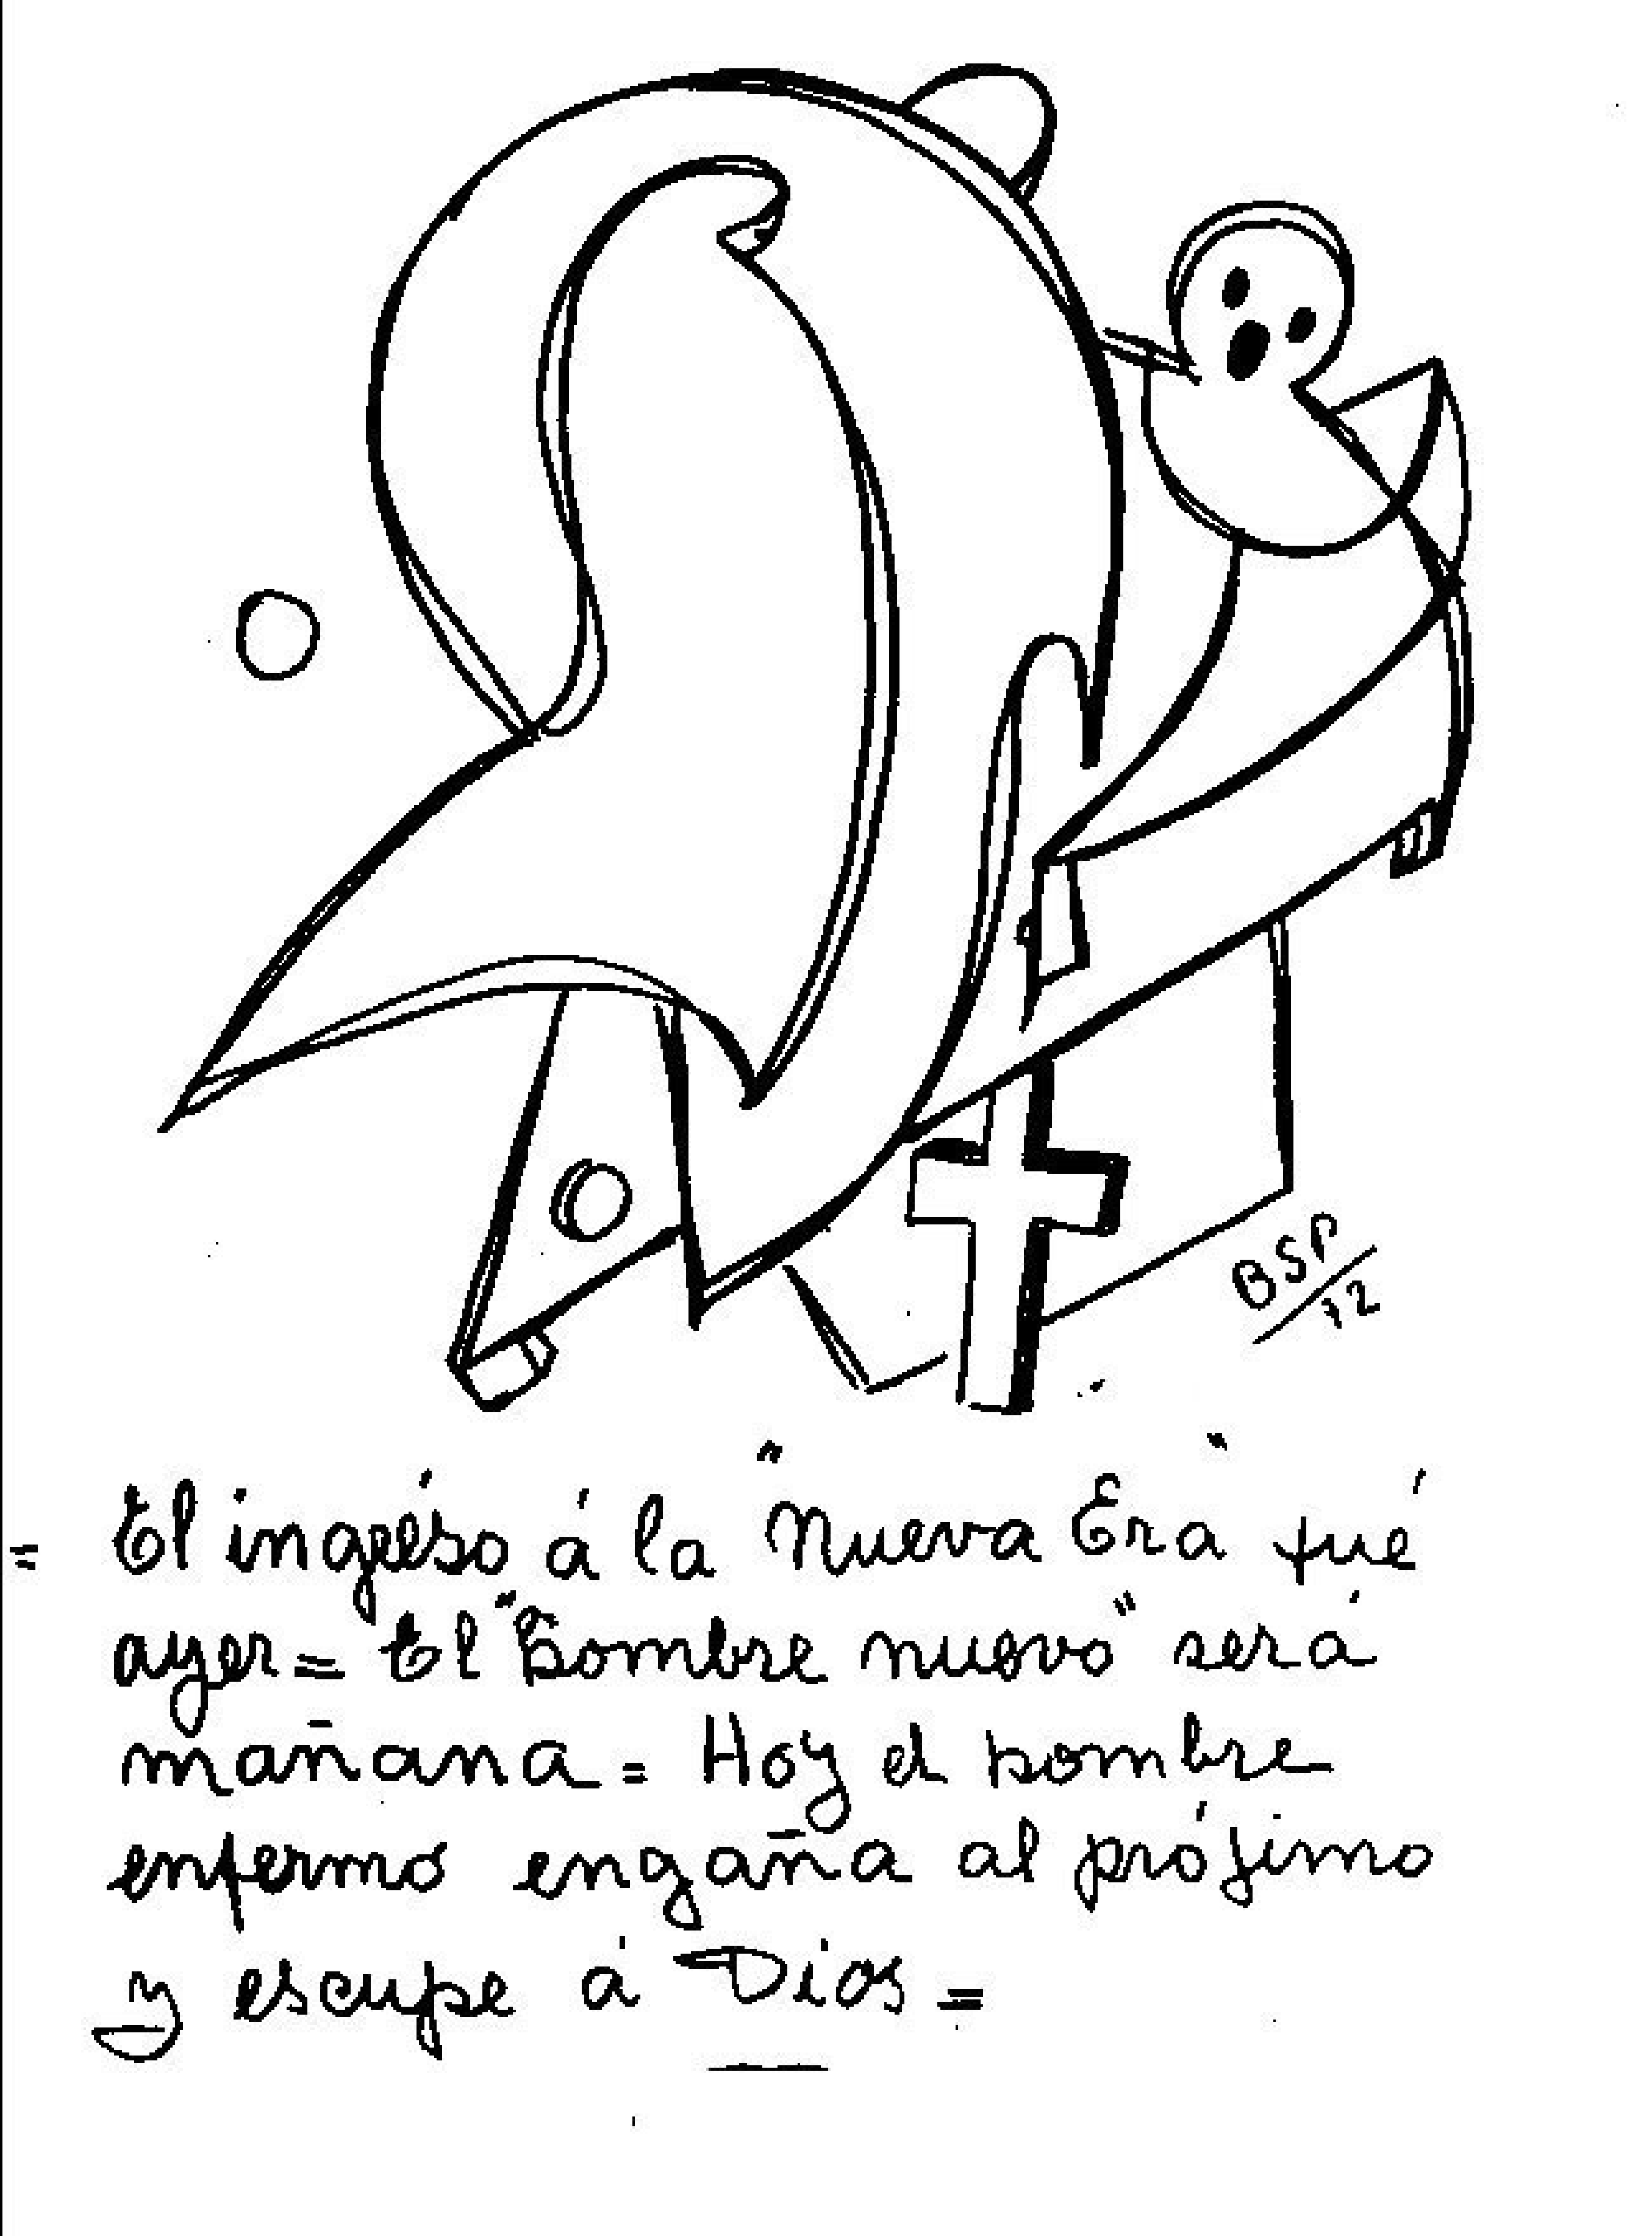 BSP
/72
= El ingréso á la "Nueva Era" fué
ayer = El "hombre nuevo" será
mañana = Hoy el hombre
enfermo engaña al prójimo
y escupe á Dios =